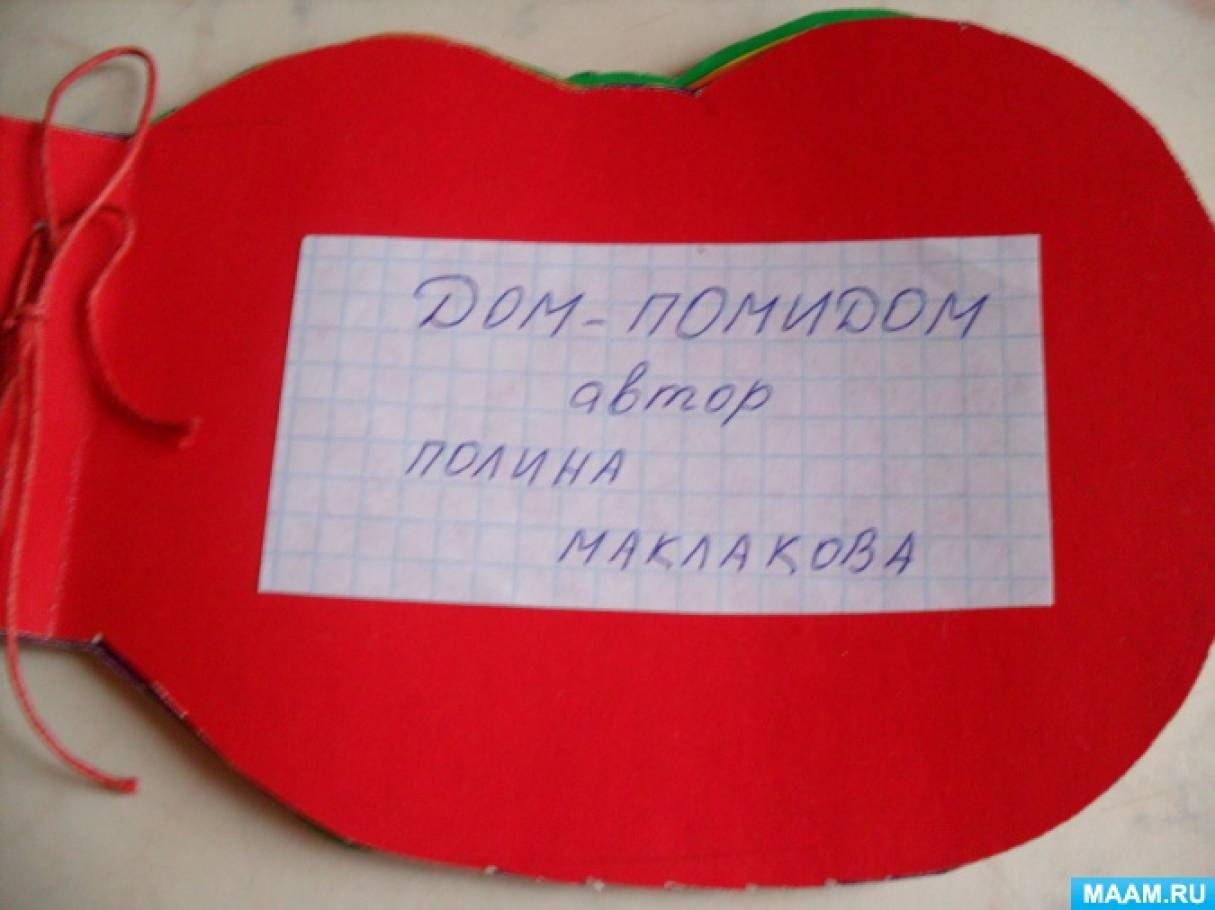 ДОМ-ПОМИДОМ
автор
ПОЛИНА
МАКЛАКОВА
MAAM.RU